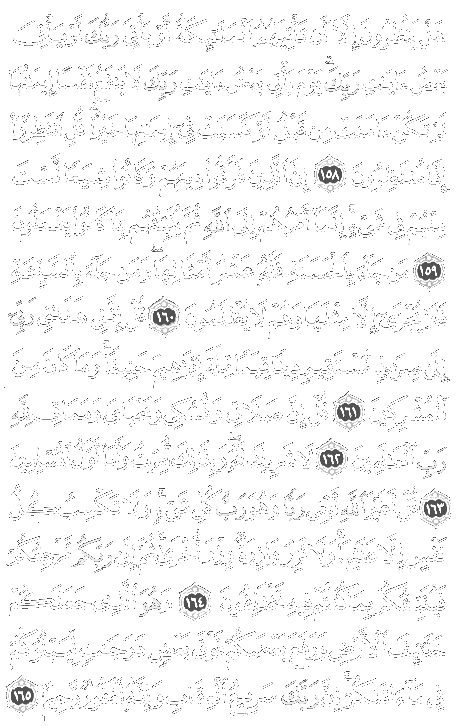 هَلْ يَنظُرُونَ إِلَّا أَن تَأْتِيَهُمُ الْمَلَائِكَةُ أَوْ يَأْتِيَ رَبُّكَ أَوْ يَأْتِيَ
بَعْضُ ءَايَاتِ رَبِّكَ يَوْمَ يَأْتِي بَعْضُ ءَايَاتِ رَبِّكَ لَا يَنفَعُ نَفْسًا إِيمَانُهَا
لَمْ تَكُنْ ءَامَنَتْ مِن قَبْلُ أَوْ كَسَبَتْ فِي إِيمَانِهَا خَيْرًا قُلِ انتَظِرُوا
إِنَّا مُنتَظِرُونَ ١٥٨ إِنَّ الَّذِينَ فَرَّقُوا دِينَهُمْ وَكَانُوا شِيَعًا لَّسْتَ
مِنْهُمْ فِي شَيْءٍ إِنَّمَا أَمْرُهُمْ إِلَى اللَّهِ ثُمَّ يُنَبِّئُهُم بِمَا كَانُوا يَفْعَلُونَ
١٥٩ مَن جَاءَ بِالْحَسَنَةِ فَلَهُ عَشْرُ أَمْثَالِهَا وَمَن جَاءَ بِالسَّيِّئَةِ
فَلَا يُجْزَىٰ إِلَّا مِثْلَهَا وَهُمْ لَا يُظْلَمُونَ ١٦٠ قُلْ إِنَّنِي هَدَانِي رَبِّي
إِلَىٰ صِرَاطٍ مُّسْتَقِيمٍ دِينًا قِيَمًا مِّلَّةَ إِبْرَاهِيمَ حَنِيفًا وَمَا كَانَ مِنَ
الْمُشْرِكِينَ ١٦١ قُلْ إِنَّ صَلَاتِي وَنُسُكِي وَمَحْيَايَ وَمَمَاتِي لِلَّهِ
رَبِّ الْعَالَمِينَ ١٦٢ لَا شَرِيكَ لَهُ وَبِذَٰلِكَ أُمِرْتُ وَأَنَا أَوَّلُ الْمُسْلِمِينَ
١٦٣ قُلْ أَغَيْرَ اللَّهِ أَبْغِي رَبًّا وَهُوَ رَبُّ كُلِّ شَيْءٍ وَلَا تَكْسِبُ كُلُّ
نَفْسٍ إِلَّا عَلَيْهَا وَلَا تَزِرُ وَازِرَةٌ وِزْرَ أُخْرَىٰ ثُمَّ إِلَىٰ رَبِّكُم مَّرْجِعُكُمْ
فَيُنَبِّئُكُم بِمَا كُنتُمْ فِيهِ تَخْتَلِفُونَ ١٦٤ وَهُوَ الَّذِي جَعَلَكُمْ
خَلَائِفَ الْأَرْضِ وَرَفَعَ بَعْضَكُمْ فَوْقَ بَعْضٍ دَرَجَاتٍ لِّيَبْلُوَكُمْ
فِي مَا ءَاتَاكُمْ إِنَّ رَبَّكَ سَرِيعُ الْعِقَابِ وَإِنَّهُ لَغَفُورٌ رَّحِيمٌ ١٦٥